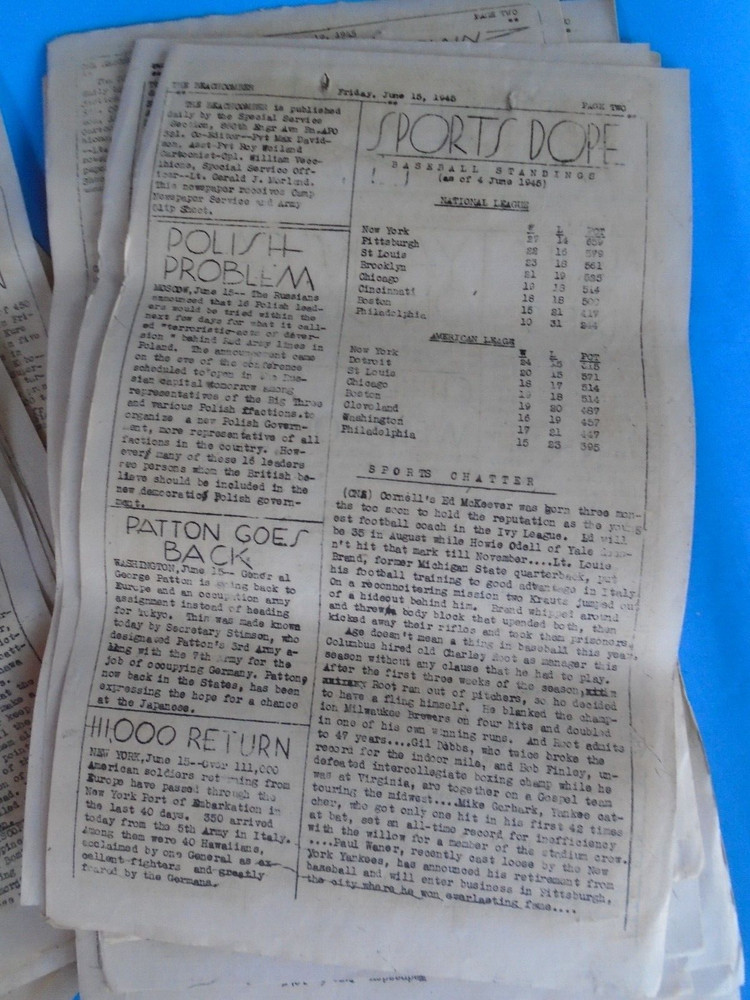 PAGE TWO
THE BEACHCOMBER
Friday, June 15, 1945
PAGE TWO
THE BEACHCOMBER is published
daily by the Special Service
Section, Engr Avn Bn. APO
Co-Editor--Pvt Max David-
son. Asst-Pvt Roy Weiland
Cartoonist-Cpl. William Vecc-
hione, Special Service Off-
icer--Lt. Gerald J. Morland.
This newspaper receives Camp
Newspaper Service and Army
Clip Sheet.
POLISH
PROBLEM
MOSCOW, June 15-- The Russians
announced that 16 Polish lead-
ers would be tried within the
next few days for what it call-
ed "terroristic-acts of diver-
sion " behind Red Army lines in
Poland. The announcement came
on the eve of the conference
scheduled to open in the Rus-
sian capital tomorrow among
representatives of the Big Three
and various Polish ffactions.to
organize a new Polish Govern-
ment, more representative of all
factions in the country. How-
ever, many of these 16 leaders
are persons whom the British be-
lieve should be included in the
new democratic Polish govern-
ment.
PATTON GOES
BACK
WASHINGTON, June 15-- General
George Patton is going back to
Europe and an occupation army
assignment instead of heading
for Tokyo. This was made known
today by Secretary Stimson, who
designated Patton's 3rd Army a-
long with the 7th Army for the
job of occupying Germany. Patton,
now back in the States, has been
expressing the hope for a chance
at the Japanese.
111,000 RETURN
NEW YORK, June 15--Over 111,000
American soldiers returning from
Europe have passed through the
New York Port of Embarkation in
the last 40 days. 350 arrived
today from the 5th Army in Italy.
Among them were 40 Hawaiians,
acclaimed by one General as ex-
cellent fighters and greatly
feared by the Germans.
SPORTS DOPE
BASEBALL STANDINGS
(as of 4 June 1945)
NATIONAL LEAGUE
W L PCT
New York 14
Pittsburgh 22 16 579
St Louis 23 18 561
Brooklyn 21 19
Chicago 19 18 514
Cincinnati 18 18 500
Boston 15 21 417
Philadelphia 10 31 244
AMERICAN LEAGUE
W L PCT
New York 24 15 615
Detroit 20 15 571
St Louis 18 17 514
Chicago 19 18 514
Boston 19 20 487
Cleveland 16 19 457
Washington 17 21 447
Philadelphia 15 23 395
SPORTS CHATTER
(CNS) Cornell's Ed McKeever was born three mon-
ths too soon to hold the reputation as the young
est football coach in the Ivy League. Ed will
be 35 in August while Howie Odell of Yale
n't hit that mark till November....Lt. Louie
Brand, former Michigan State quarterback, put
his football training to good advantage in Italy.
On a reconnoitering mission two Krauts jumped out
of a hideout behind him. Brand whipped around
and threw a body block that upended both, then
kicked away their rifles and took them prisoners.
Age doesn't mean a thing in baseball this year,
Columbus hired old Charley Root as manager this
season without any clause that he had to play.
After the first three weeks of the season,
Root ran out of pitchers, so he decided
to have a fling himself. He blanked the champ-
ion Milwaukee Brewers on four hits and doubled
in one of his own winning runs. And Root admits
to 47 years....Gil Dobbs, who twice broke the
record for the indoor mile, and Bob Finley, un-
defeated intercollegiate boxing champ while he
was at Virginia, are together on a Gospel team
touring the midwest....Mike Gerbark, Yankee cat-
cher, who got only one hit in his first 42 times
at bat, set an all-time record for inefficiency
with the willow for a member of the stadium crow.
....Paul Waner, recently cast loose by the New
York Yankees, has announced his retirement from
baseball and will enter business in Pittsburgh,
the city where he won everlasting fame....